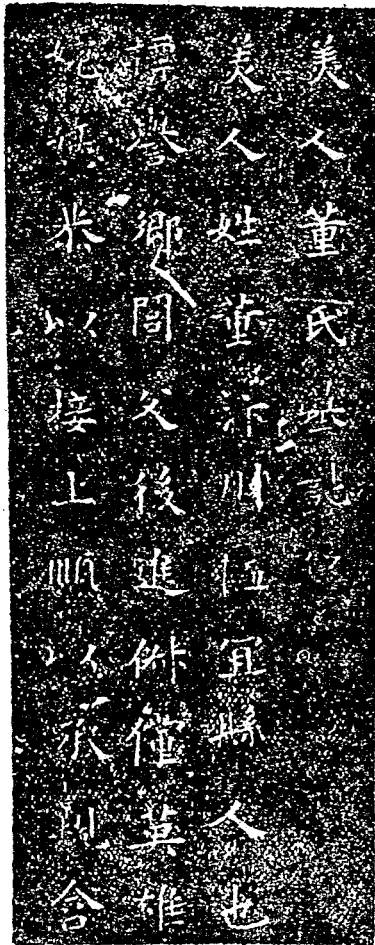 美人董氏墓誌銘
美人姓董汴州恤宜縣人也
譽鄉閭父後進俶儻英雄
恭以接上順以承親含